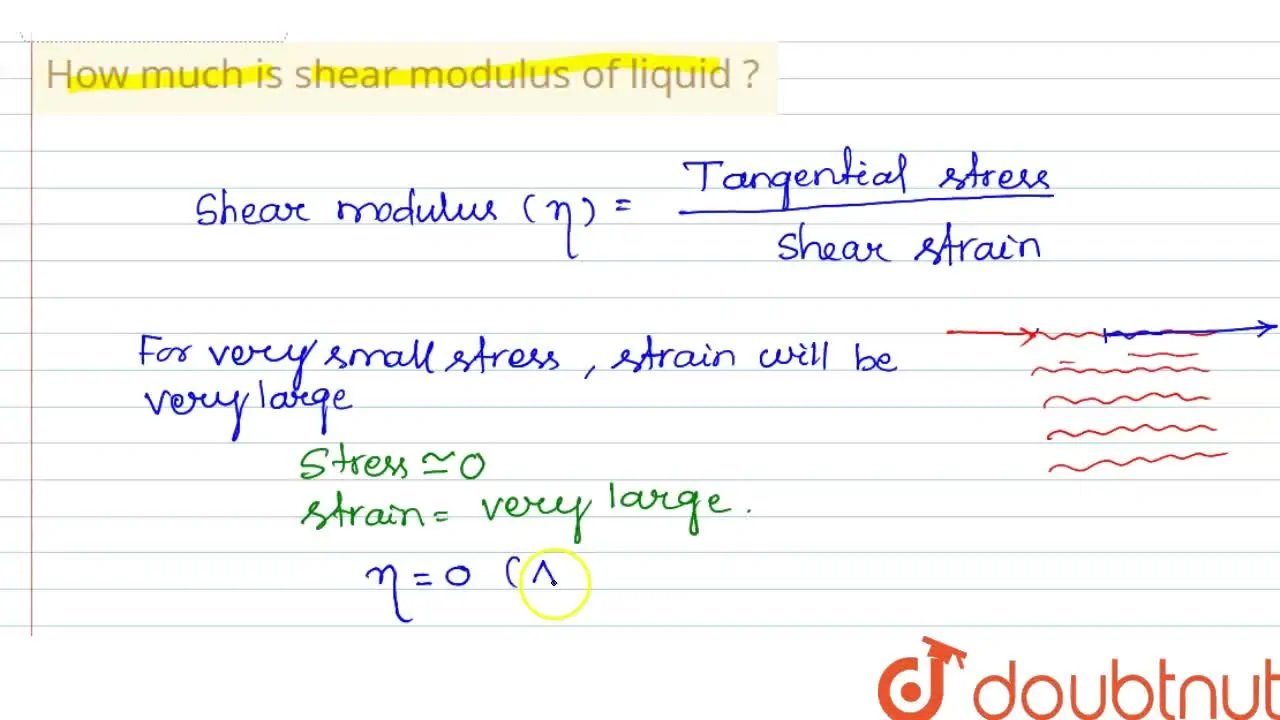 How much is shear modulus of liquid ?
Shear modulus (η) = Tangential stress
Shear strain
For very small stress, strain will be
very large
Stress ≃ 0
strain = very large.
η = 0 (A
doubtnut